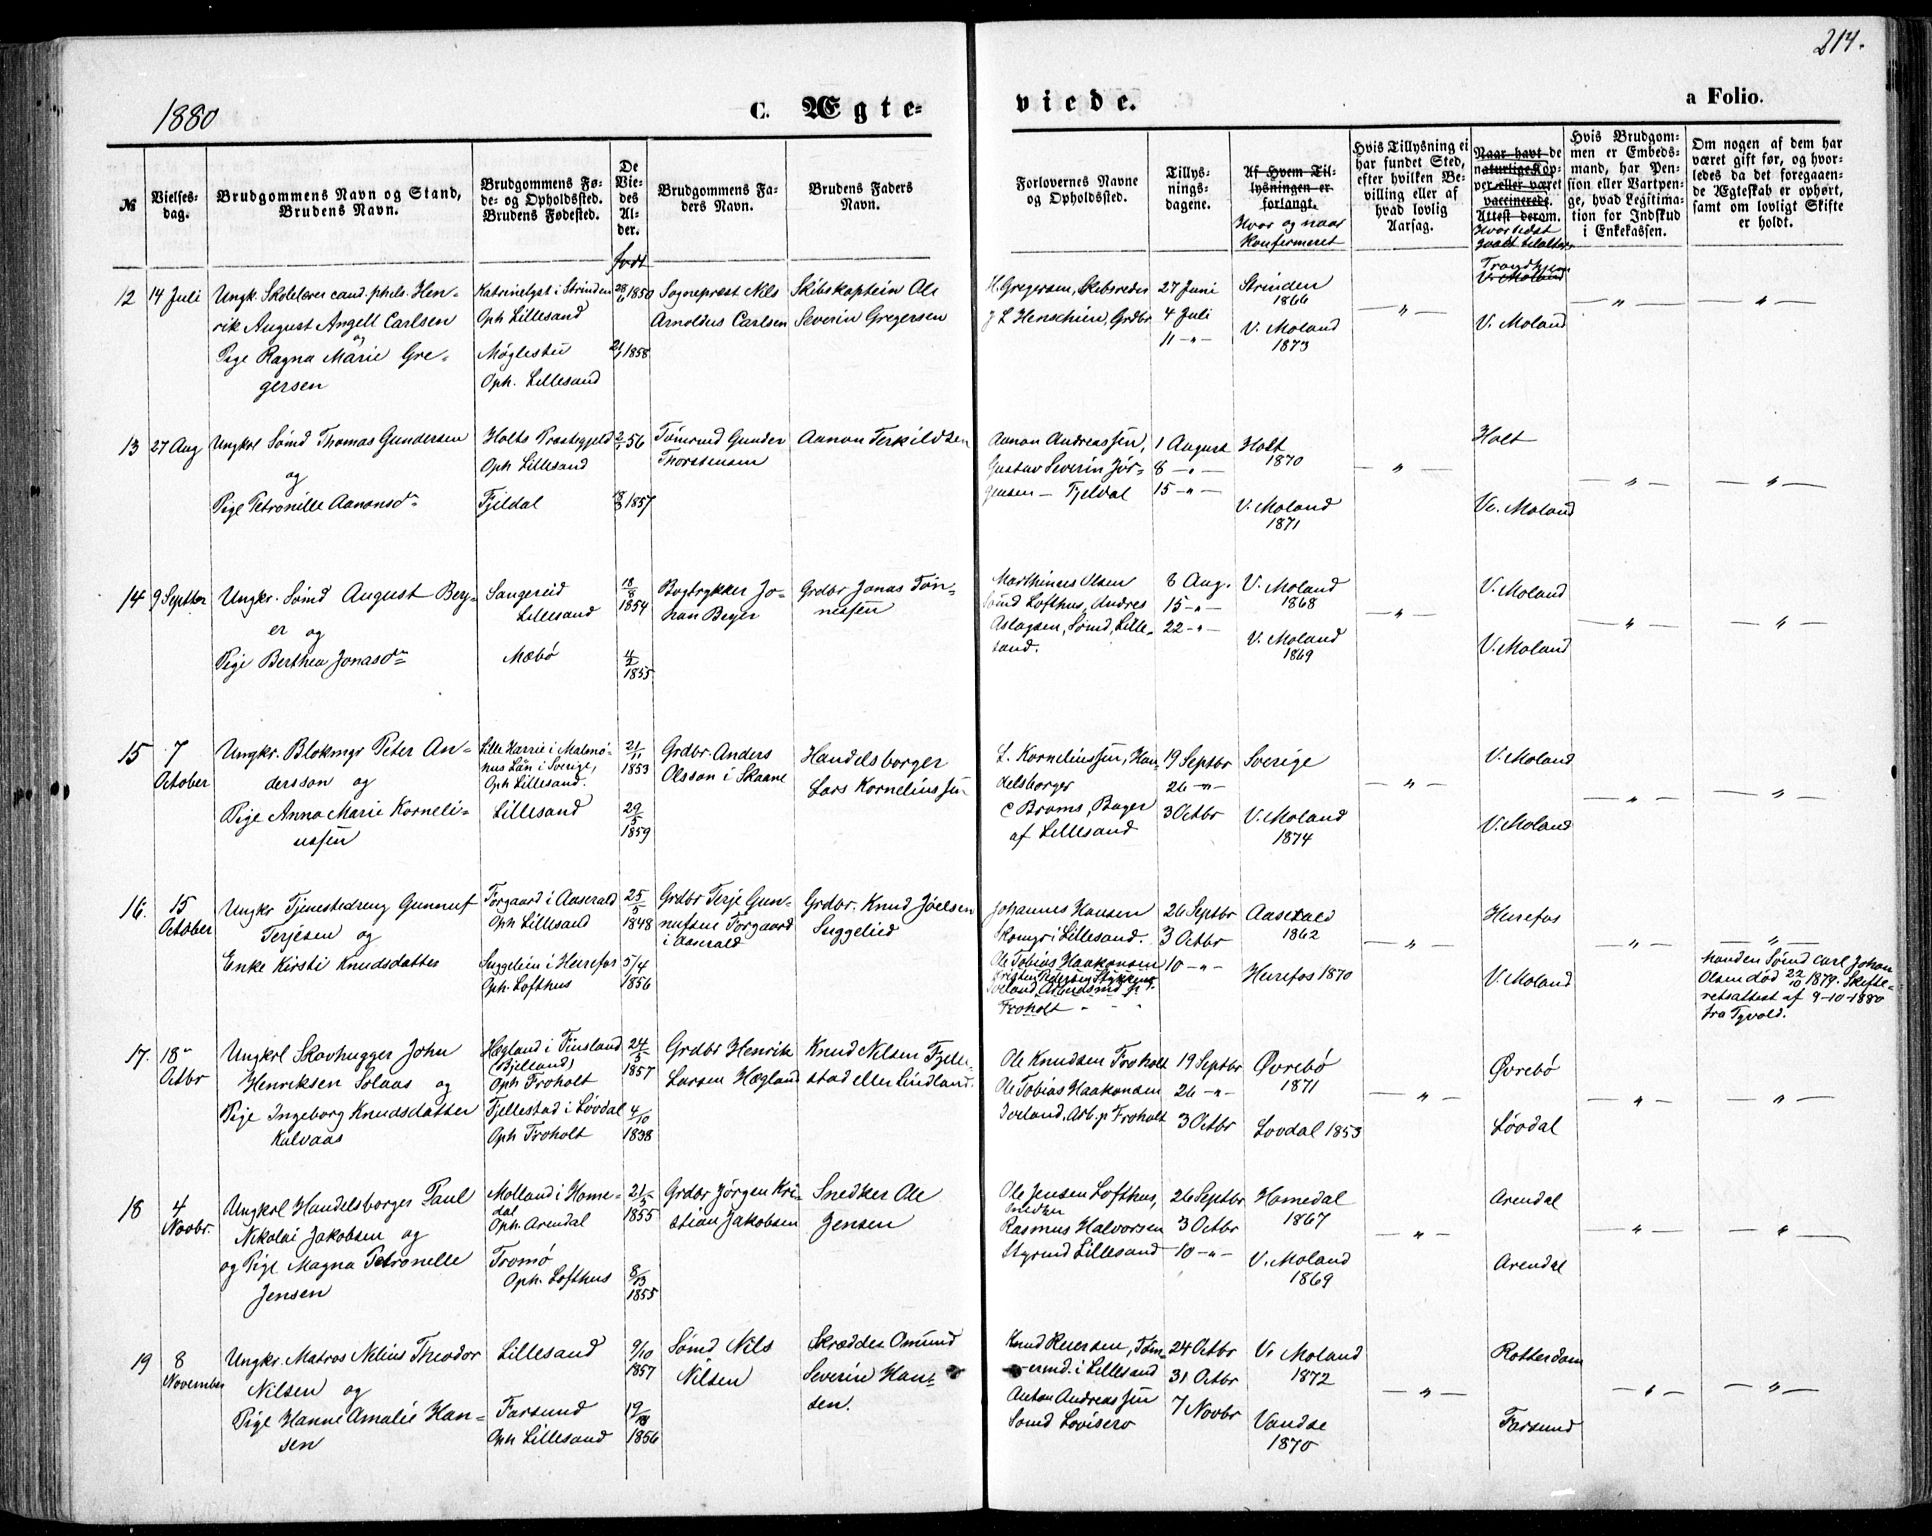 214.
1880
C. Ægte-
viede.
a Folio.
№
Vielses-
dag.
Brudgommens Navn og Stand,
Brudens Navn.
Brudgommens Fø-
de- og Opholdssted.
Brudens Fødested.
De
Vie-
des
Al-
der.
født
Brudgommens Fa-
ders Navn.
Brudens Faders
Navn.
Forlovernes Navne
og Opholdssted.
Tillys-
nings-
dagene.
Af Hvem Til-
lysningen er
forlangt.
Hvor og naar
Konfirmeret
Hvis Tillysning ei
har fundet Sted,
efter hvilken Be-
villing eller af
hvad lovlig
Aarsag.
Naar havt de
naturlige Kop-
per eller været
vaccinerede.
Attest derom.
Hvor sidst
gaaet til alters
Hvis Brudgom-
men er Embeds-
mand, har Pen-
sion eller Vartpen-
ge, hvad Legitima-
tion for Indskud
i Enkekassen.
Om nogen af dem har
været gift før, og hvor-
ledes da det foregaaen-
de Ægteskab er ophørt,
samt om lovligt Skifte
er holdt.
12
14 Juli
Ungk. Skolelærer cand. phils. Hen-
rik August Angell Carlsen
og
Pige Ragna Marie Gre-
gersen
Katrinelyst i Strinden
Oph Lillesand
Møglestu
Oph. Lillesand
28/6 1850
1858
Sogneprest Nils
Arnoldus Carlsen
Skibskaptein Ole
Severin Gregersen
H. Gregersen, Skibsreder
J L Henschien, Grdbr
27 Juni
4 Juli
11 -"-
Strinden
1866
V. Moland
1873
Trondhjem
V. Moland
V. Moland
13
27 Aug
Ungkl Sømd Thomas Gundersen
og
Pige Petronille Aanonsdr
Holts Præstegjeld
Oph Lillesand
Fjeldal
56
1857
Tømrmd Gunder
Thorstensen
Aanon Terkildsen
Aanon Andreassen,
Gustav Severin Jør-
gensen - Fjeldal
1 August
8 -"-
15 -"-
Holt
1870
V. Moland
1871
Holt
V. Moland
14
9 Septbr
Ungkr. Sømd August Bey-
er og
Pige Berthea Jonasdr
Sangereid
Lillesand
Mæbø
18/8
1854
4/2
1855
Bogtrykker Jo-
han Beyer
Grdbr Jonas Tøn-
nessen
Marthinus Olsen
Sømd Lofthus, Andres
Aslagsen, Sømd, Lille-
sand.
8 Aug.
15 -"-
22 -"-
V. Moland
1868
V. Moland
1869
V. Moland
V. Moland
15
7
October
Ungkr. Blokmgr Peter An-
dersson og
Pige Anna Marie Korneli-
ussen
Lille Harrie i Malmø-
hus Län i Sverige,
Oph Lillesand.
Lillesand
21/11
1853
29/5
1859
Grdbr. Anders
Olsson i Skaane
Handelsborger
Lars Korneliussen
L. Korneliussen, Han-
delsborger
C Broms, Bager
af Lillesand
19 Septbr
26 -"-
3 Octbr
Sverige
V. Moland
1874
V. Moland
V. Moland
16.
15
October
Ungkr Tjenestedreng Gunnuf
Terjesen og
Enke Kirsti Knudsdatter
Førgaard i Aaserald
Oph Lillesand
Suggelien i Heirefos
Oph. Lofthus
25/5
1848
5/4
1856
Grdbr Terje Gun-
nufsen Førgaard
i Aaserald
Grdbr. Knud Joelsen
Suggelied
Johannes Hansen
Skomgr i Lillesand.
Ole Tobias Haakonsen
Iveland, Arbeidsmd p. t.
Froholt
26 Septbr
3 Octbr
10 -"-
Aaserald
1862
Heirefos 1870
Heirefos
V. Moland
Manden Sømd Carl Johan
Olsen død 22/10 1879. Skifte-
retsattest af 9-10-1880
fra Tyvold.
17.
18de
Octbr
Ungkl Skovhugger John
Henriksen Solaas og
Pige Ingeborg Knudsdatter
Kulvaas
Hægland i Finsland
(Bjelland)
Oph Froholt
Fjellestad i Løvdal
Oph Froholt
24/5
1857
4/10
1838
Grdbr Henrik
Larsen Hægland
Knud Nilsen Fjelle-
stad eller Lindland.
Ole Knudsen Froholt
Ole Tobias Haakonsen
Iveland. Arb. p Froholt
19 Septbr
26 -"-
3 Octbr
Øvrebø
1871
Løvdal 1853
Øvrebø
Løvdal
18
4
Novbr.
Ungkl Handelsborger Paul
Nikolai Jakobsen og
og Pige Magna Petronelle
Jensen
Molland i Home-
dal
Oph. Arendal
Tromø
Oph. Lofthus
21/5
1855
1855
Grdbr Jørgen Kri-
stian Jakobsen
Snedker Ole
Jensen
Ole Jensen Lofthus,
Snedker
Rasmus Halvorsen
Styrmd Lillesand
26 Septbr
3 Octbr
10 -"-
Homedal
1867
V. Moland
1869
Arendal
Arendal
19
8
November
Ungkr. Matros Nilius Theodor
Nilsen og
Pige Hanne Amalie Han-
sen
Lillesand
Farsund
Oph Lillesand
9/10
1857
1856
Sømd Nils
Nilsen
Skrædder Omund
Severin Han-
sen.
Knud Reiersen, Tøm-
ermd. i Lillesand
Anton Andreassen
Sømd Lovisero
24 Octbr
31 Octbr
7 Novbr
V. Moland
1872
Vandse
1870
Rotterdam
Farsund